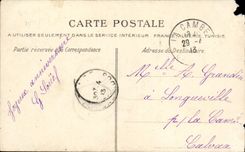 CARTE POSTALE
A UTILISER SEULEMENT DANS LE SERVICE INTÉRIEUR FRANCE, ALGÉRIE & TUNISIE
Partie réservée à la Correspondance
Adresse du Destinataire
CAMBE
29 -
Joyeux anniversaire
Melle A. Grandin
à Longueville
par la Cambe
Calvados